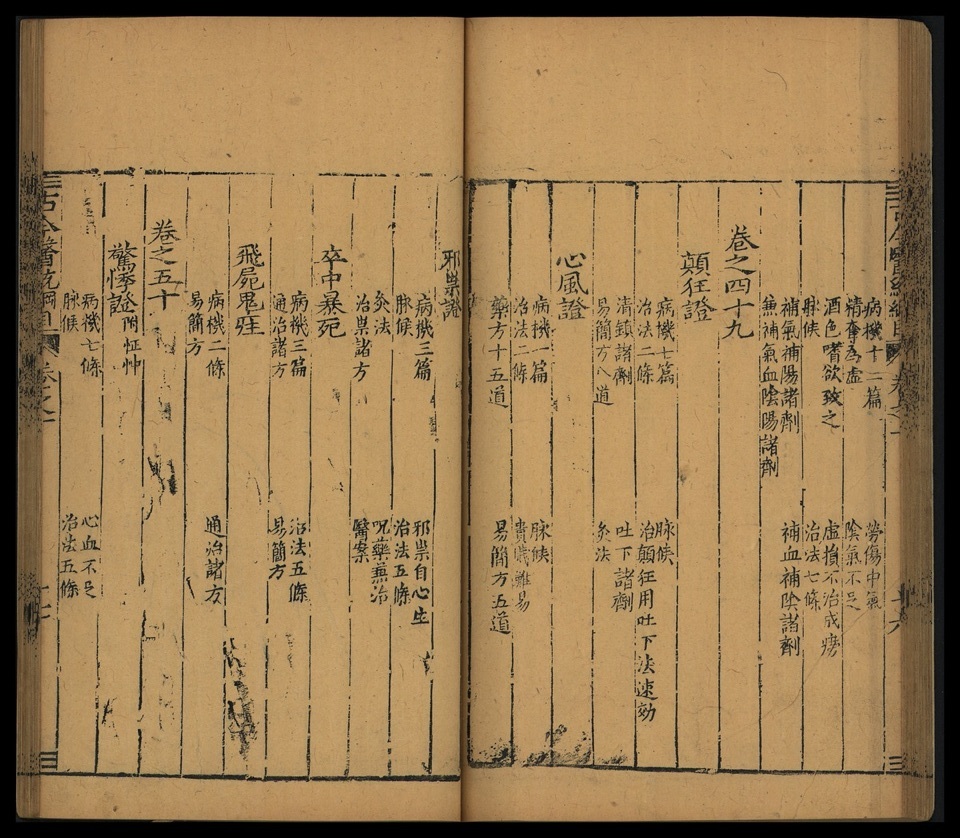 病機十二篇　勞傷中氣
精奪為虛　陰氣不足
酒色嗜欲致之　虛損不治成癆
脉候　治法七條
補氣補陽諸劑　補血補陰諸劑
兼補氣血陰陽諸劑
卷之四十九
顛狂證
病機七篇　脉候
治法二條　治顛狂用吐下法速効
清鎮諸劑　吐下諸劑
易簡方八道　灸法
心風證
病機一篇　脉候
治法二條　貴賤難易
藥方十五道　易簡方五道
邪祟證
病機三篇　邪祟自心生
脉候　治法五條
灸法　呪藥兼治
治祟諸方　醫案
卒中暴死
病機三篇　治法五條
通治諸方　易簡方
飛屍鬼疰
病機二條　通治諸方
易簡方
卷之五十
驚悸證附怔忡
病機七條　心血不足
脉候　治法五條
古今醫統綱目　卷之一　十七